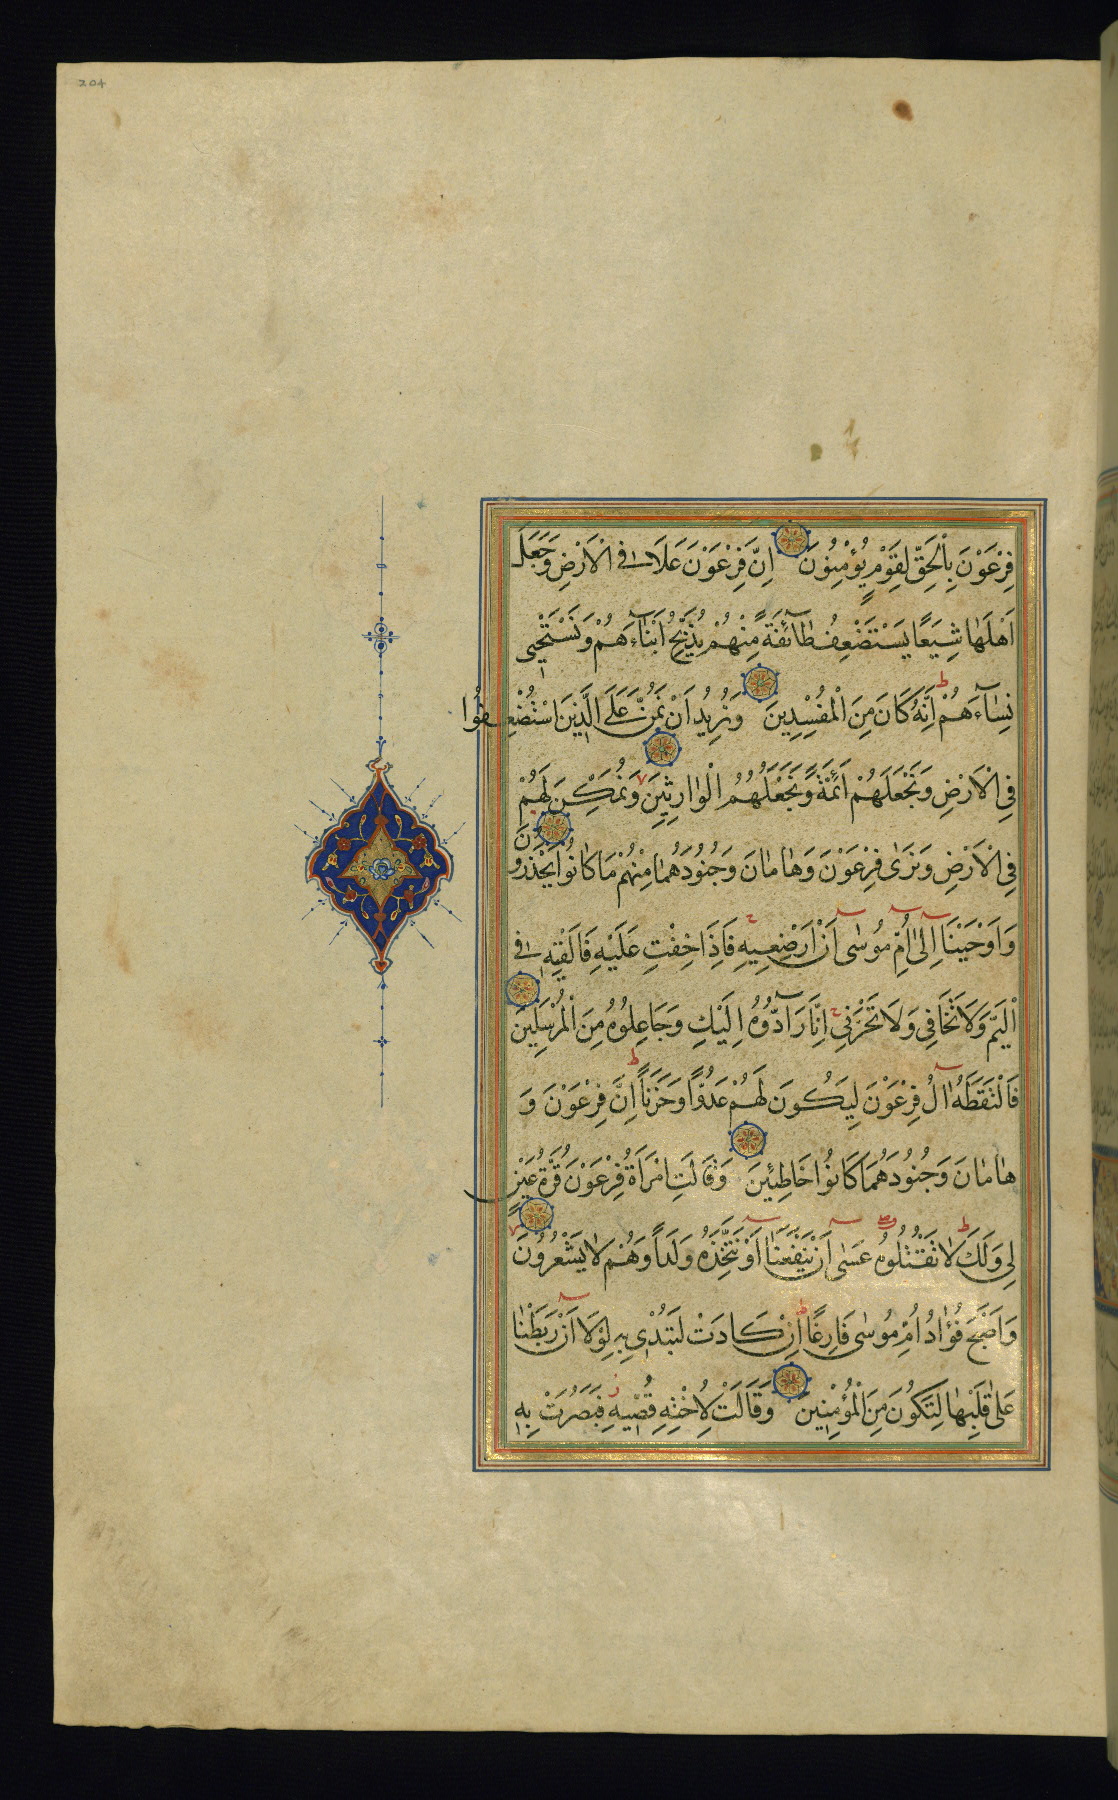 204
فِرْعَوْنَ بِالْحَقِّ لِقَوْمٍ يُؤْمِنُونَ اِنَّ فِرْعَوْنَ عَلَا فِي الْاَرْضِ وَجَعَلَ
اَهْلَهَا شِيَعًا يَسْتَضْعِفُ طَآئِفَةً مِّنْهُمْ يُذَبِّحُ اَبْنَآءَهُمْ وَيَسْتَحْيِي
نِسَآءَهُمْ اِنَّهُ كَانَ مِنَ الْمُفْسِدِينَ وَنُرِيدُ اَنْ نَمُنَّ عَلَى الَّذِينَ اسْتُضْعِفُوا
فِي الْاَرْضِ وَنَجْعَلَهُمْ اَئِمَّةً وَنَجْعَلَهُمُ الْوَارِثِينَ وَنُمَكِّنَ لَهُمْ
فِي الْاَرْضِ وَنُرِىَ فِرْعَوْنَ وَهَامَانَ وَجُنُودَهُمَا مِنْهُمْ مَا كَانُوا يَحْذَرُونَ
وَاَوْحَيْنَا اِلٰى اُمِّ مُوسٰى اَنْ اَرْضِعِيهِ فَاِذَا خِفْتِ عَلَيْهِ فَاَلْقِيهِ فِي
الْيَمِّ وَلَا تَخَافِي وَلَا تَحْزَنِي اِنَّا رَآدُّوهُ اِلَيْكِ وَجَاعِلُوهُ مِنَ الْمُرْسَلِينَ
فَالْتَقَطَهُ اٰلُ فِرْعَوْنَ لِيَكُونَ لَهُمْ عَدُوًّا وَحَزَنًا اِنَّ فِرْعَوْنَ وَ
هَامَانَ وَجُنُودَهُمَا كَانُوا خَاطِئِينَ وَقَالَتِ امْرَاَةُ فِرْعَوْنَ قُرَّةُ عَيْنٍ
لِي وَلَكَ لَا تَقْتُلُوهُ عَسٰى اَنْ يَنْفَعَنَا اَوْ نَتَّخِذَهُ وَلَدًا وَهُمْ لَا يَشْعُرُونَ
وَاَصْبَحَ فُؤَادُ اُمِّ مُوسٰى فَارِغًا اِنْ كَادَتْ لَتُبْدِي بِهِ لَوْلَا اَنْ رَبَطْنَا
عَلٰى قَلْبِهَا لِتَكُونَ مِنَ الْمُؤْمِنِينَ وَقَالَتْ لِاُخْتِهِ قُصِّيهِ فَبَصُرَتْ بِهِ